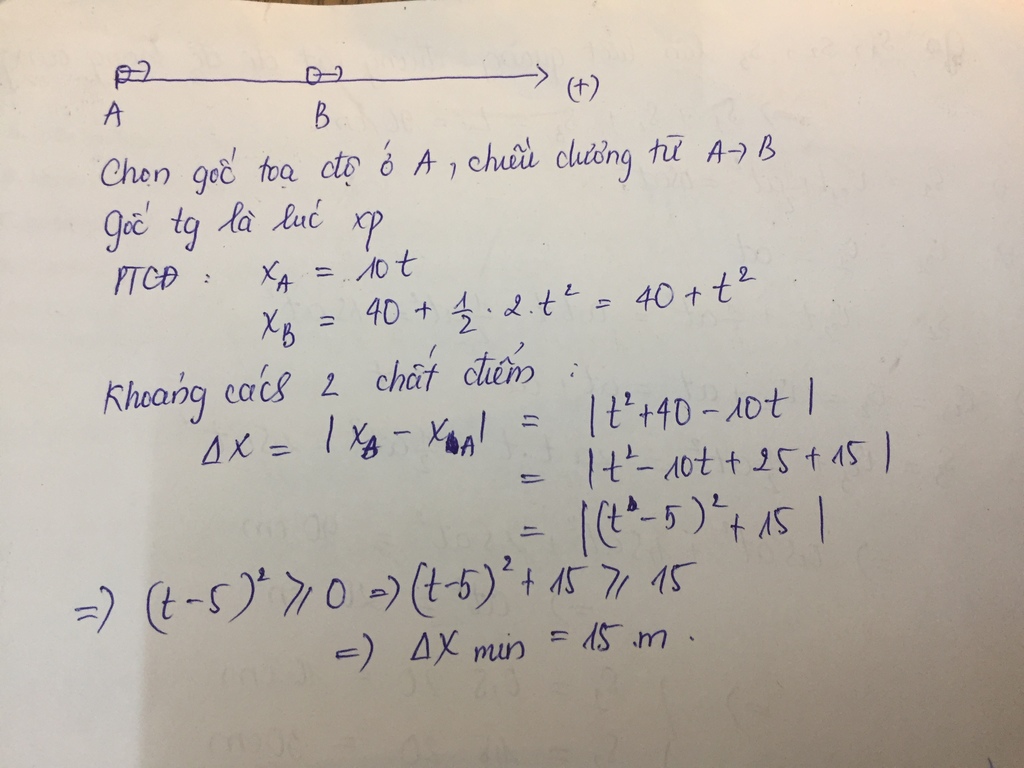 A B (+)
Chọn gốc toạ độ ở A, chiều dương từ A → B
Gốc tg là lúc xp
PTCĐ : x_A = 10t
x_B = 40 + 1/2 . 2 . t² = 40 + t²
Khoảng cách 2 chất điểm :
Δx = | x_B - x_A | = | t² + 40 - 10t |
= | t² - 10t + 25 + 15 |
= | (t - 5)² + 15 |
=> (t - 5)² ⩾ 0 => (t - 5)² + 15 ⩾ 15
=> Δx min = 15 m .